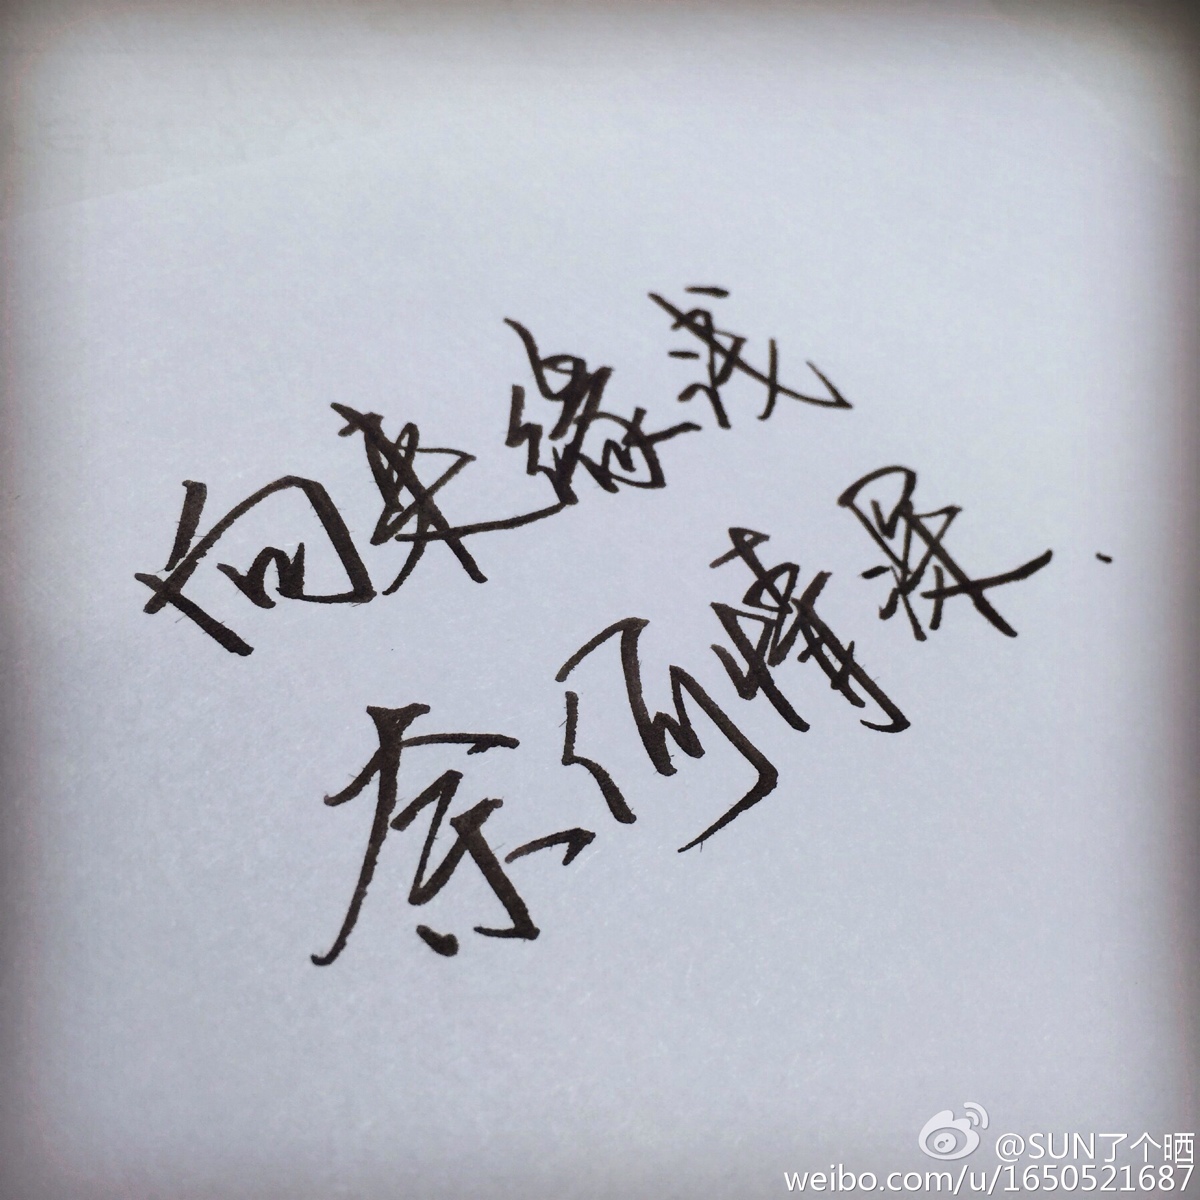 向来缘浅
奈何情深.
@SUN了个晒
weibo.com/u/1650521687